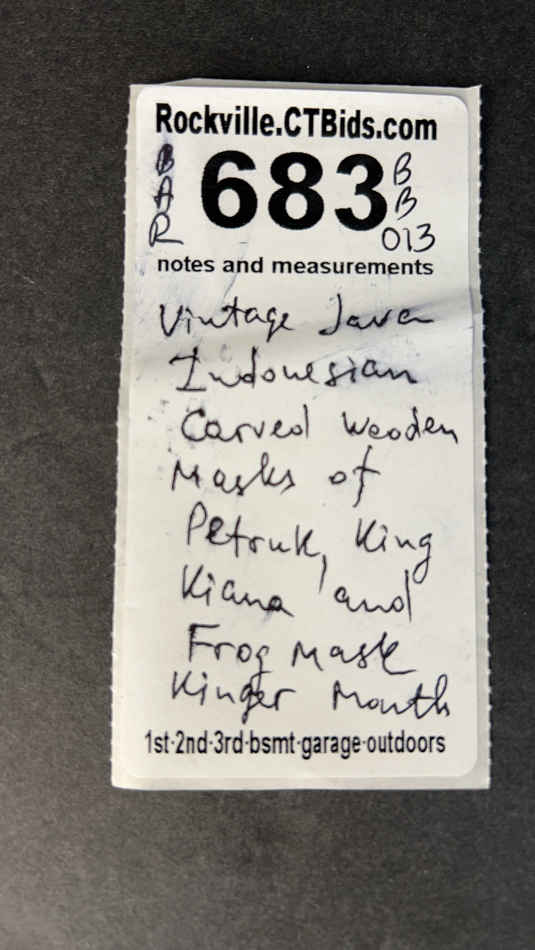 Rockville.CTBids.com
BAR 683 BB 013
notes and measurements
Vintage Java
Indonesian
Carved Wooden
Masks of
Petruk, King
Kiana and
Frog Mask
Kinger Month
1st-2nd-3rd-bsmt-garage-outdoors